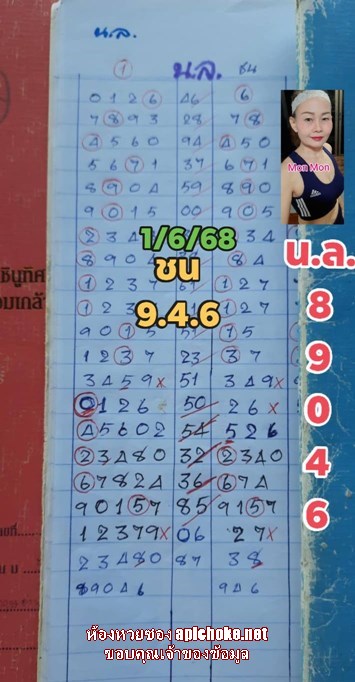 น.ล.
1 น.ล. ชน
0126 46 6
7893 28 78
4560 94 450
5671 37 671
8904 59 890
9015 00 905
234 34
8904 84
1237 127
123 127
9015 51 15
1237 23 37
3459x 51 349x
0126 50 26x
45602 54 526
23480 32 2340
67824 36 674
90157 85 9157
12379x 06 27x
23480 87 38
89046 946
Mon Mon
1/6/68
ชน
9.4.6
น.ล.
8
9
0
4
6
ห้องหวยซอง apichoke.net
ขอบคุณเจ้าของข้อมูล